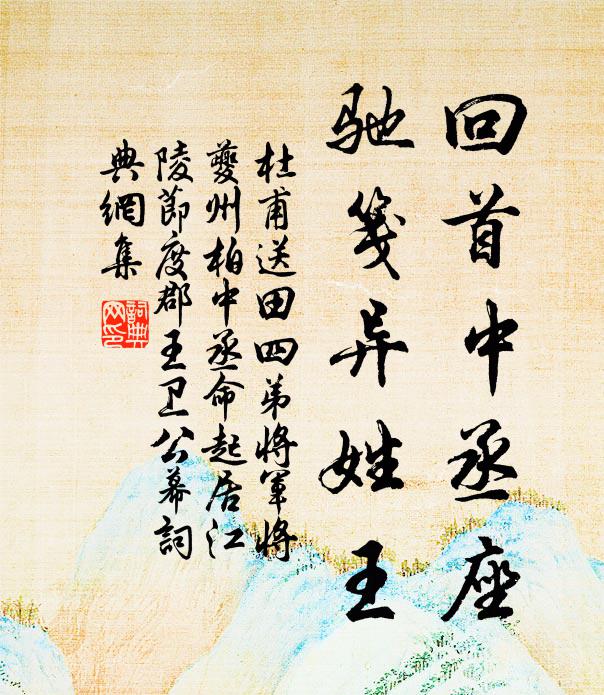 回首中丞座
驰笺异姓王
杜甫送田四弟将军将
夔州柏中丞命起居江
陵节度郡王卫公幕词
典網集
詞典網印